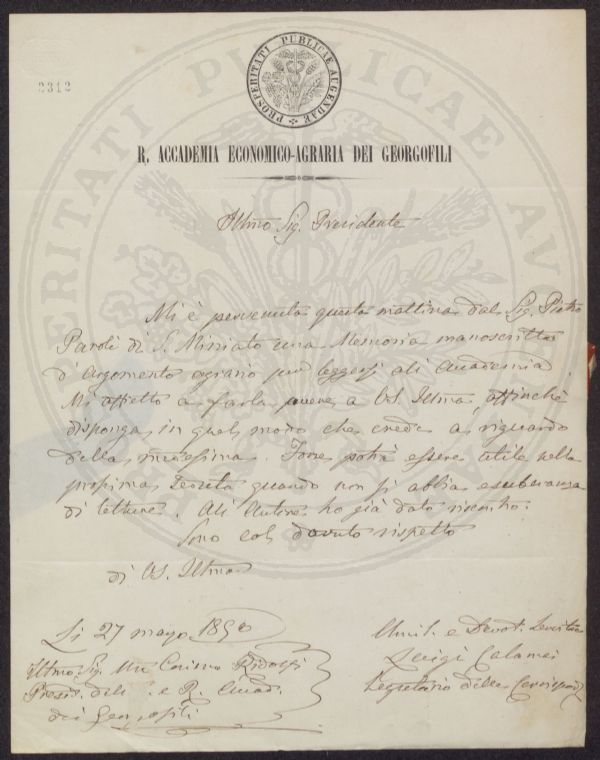 2312
PROSPERITATI PUBLICAE AUGENDAE
R. ACCADEMIA ECONOMICO-AGRARIA DEI GEORGOFILI
Illmo Sig. Presidente
Mi è pervenuta questa mattina dal Sig. Pietro
Paroli di S. Miniato una Memoria manoscritta
d'argomento agrario per leggersi all'Accademia.
Mi affretto a farla avere a VS. Illma, affinchè
disponga in quel modo che crede a riguardo
della medesima. Forse potrà essere utile nella
prossima Seduta quando non si abbia esuberanza
di letture. All'Autore ho già dato riscontro.
Sono col dovuto rispetto
di VS. Illma
Li 27 maggio 1850
Illmo Sig. Mse Cosimo Ridolfi
Presid. dell'I. e R. Accad.
dei Georgofili
Umil. e Devot. Servitore
Luigi Calamai
Segretario delle Corrispond